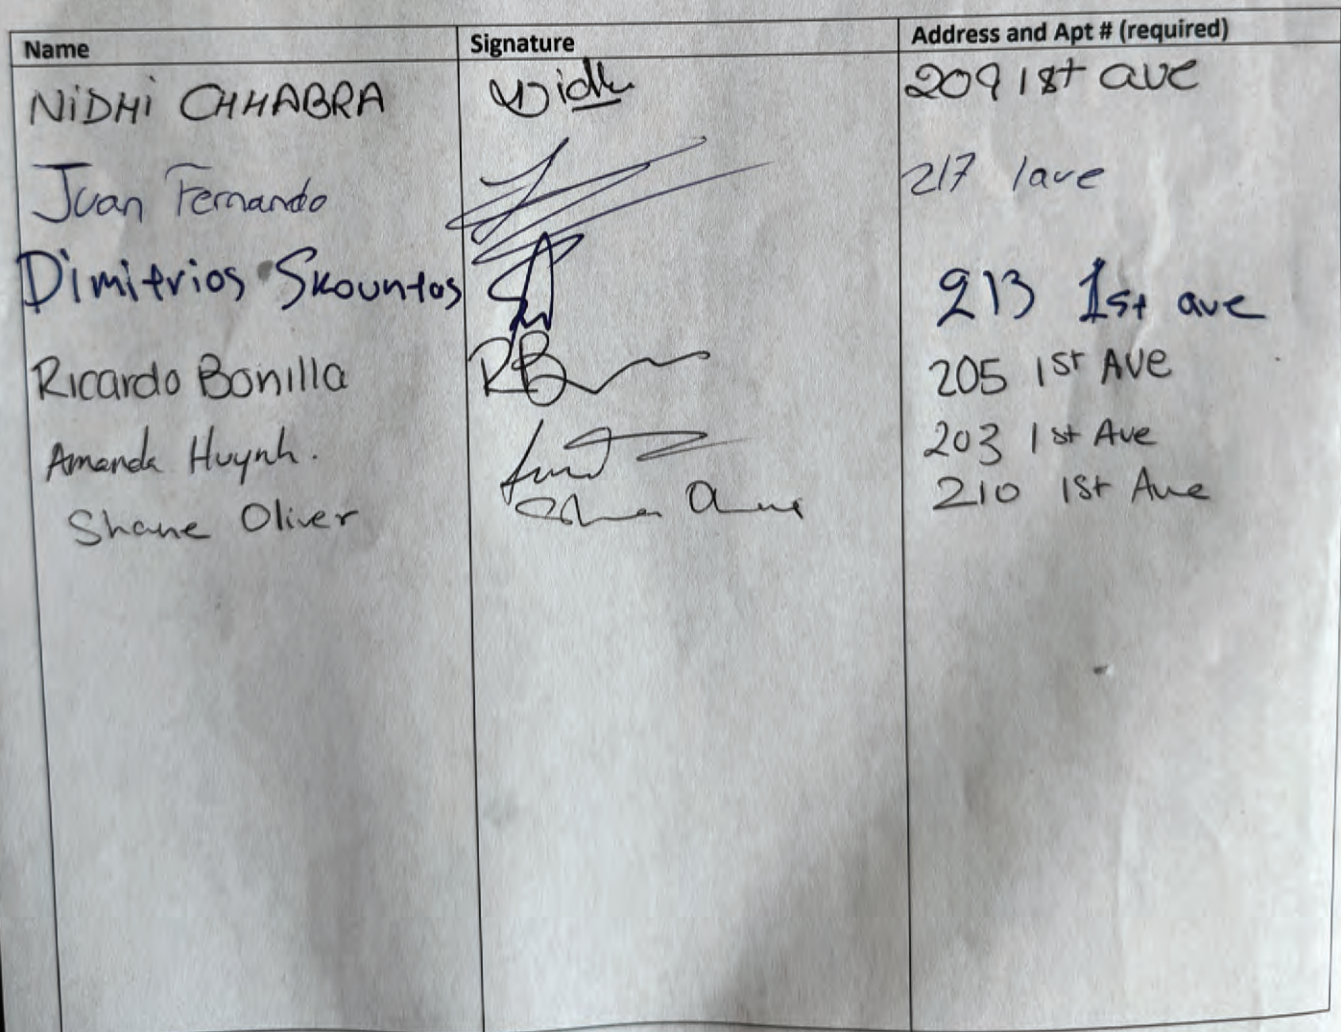 Name Signature Address and Apt # (required)
NiDHi CHHABRA Nidhi 209 1st ave
Juan Fernando 217 1ave
Dimitrios Skountos 213 1st ave
Ricardo Bonilla RB 205 1st AVE
Amanda Huynh. 203 1st Ave
Shane Oliver 210 1st Ave